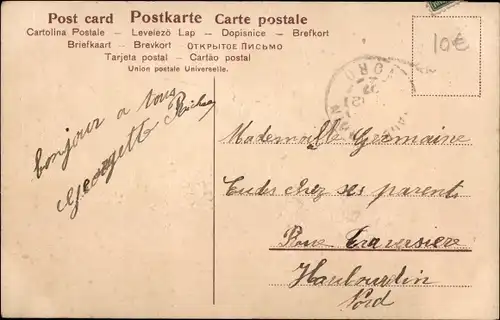 Post card Postkarte Carte postale
Cartolina Postale – Levelező Lap – Dopisnice – Brefkort
Briefkaart – Brevkort – ОТКРЫТОЕ ПИСЬМО
Tarjeta postal – Cartão postal
Union postale Universelle.
10€
NORD
bonjour a tous
Georgett
Mademoiselle Germaine
chez ses parents
Rue Traversière
Haubourdin
Nord